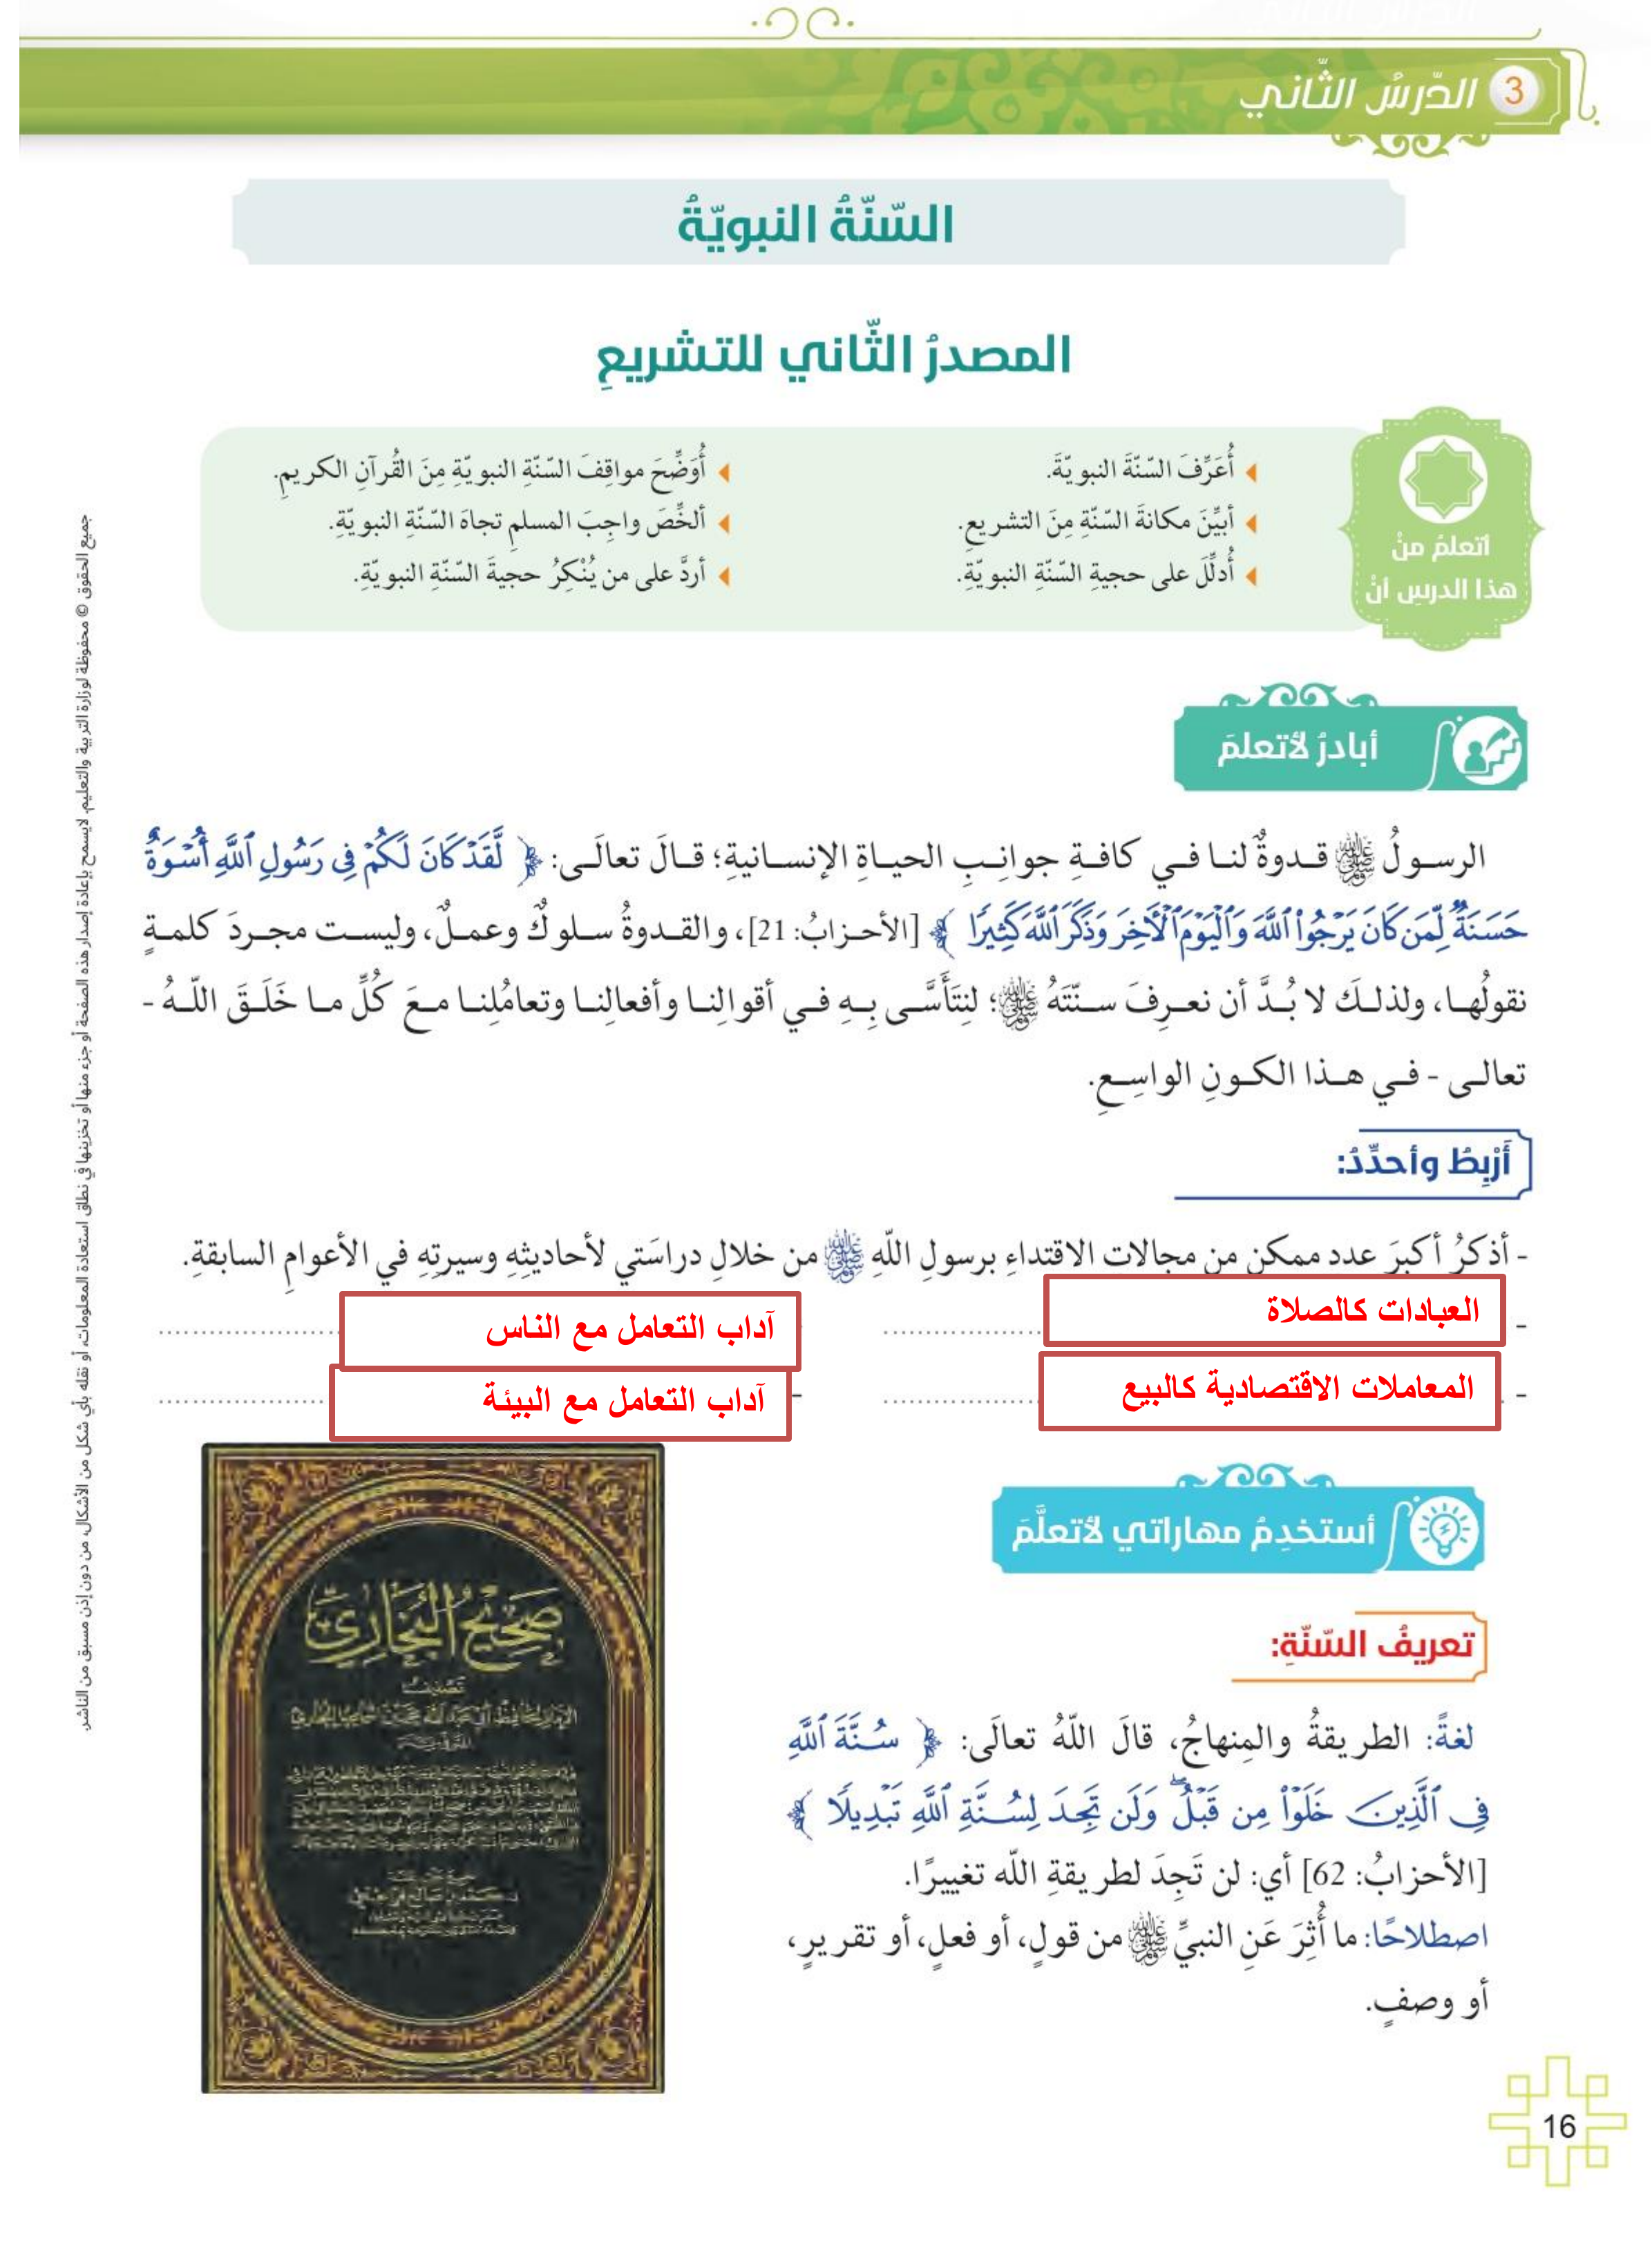 3 الدّرسُ الثّاني
السّنّةُ النبويّةُ
المصدرُ الثّاني للتشريعِ
أتعلمُ منْ
هذا الدرسِ أنْ
أُعَرِّفَ السّنّةَ النبويّةَ.
أبيِّنَ مكانةَ السّنّةِ مِنَ التشريعِ.
أُدلِّلَ على حجيةِ السّنّةِ النبويّةِ.
أُوَضِّحَ مواقِفَ السّنّةِ النبويّةِ مِنَ القُرآنِ الكريمِ.
ألخِّصَ واجِبَ المسلمِ تجاهَ السّنّةِ النبويّةِ.
أردَّ على من يُنْكِرُ حجيةَ السّنّةِ النبويّةِ.
أبادرُ لأتعلمَ
الرسولُ ﷺ قدوةٌ لنا في كافةِ جوانِبِ الحياةِ الإنسانيةِ؛ قالَ تعالَى: ﴿ لَّقَدْ كَانَ لَكُمْ فِي رَسُولِ ٱللَّهِ أُسْوَةٌ
حَسَنَةٌ لِّمَن كَانَ يَرْجُوا۟ ٱللَّهَ وَٱلْيَوْمَ ٱلْآخِرَ وَذَكَرَ ٱللَّهَ كَثِيرًا ﴾ [الأحزابُ: 21]، والقدوةُ سلوكٌ وعملٌ، وليست مجردَ كلمةٍ
نقولُها، ولذلكَ لا بُدَّ أن نعرِفَ سنّتَهُ ﷺ؛ لنِتَأَسَّى بِهِ في أقوالِنا وأفعالِنا وتعامُلِنا معَ كُلِّ ما خَلَقَ اللّهُ -
تعالى - في هذا الكونِ الواسِعِ.
أَرْبِطُ وأحدِّدُ:
- أذكرُ أكبرَ عدد ممكن من مجالات الاقتداءِ برسولِ اللّهِ ﷺ من خلالِ دراسَتي لأحاديثِهِ وسيرتِهِ في الأعوامِ السابقةِ.
- العبادات كالصلاة
آداب التعامل مع الناس
- المعاملات الاقتصادية كالبيع
- آداب التعامل مع البيئة
أستخدِمُ مهاراتي لأتعلَّمَ
تعريفُ السّنّةِ:
لغةً: الطريقةُ والمِنهاجُ، قالَ اللّهُ تعالَى: ﴿ سُنَّةَ ٱللَّهِ
فِي ٱلَّذِينَ خَلَوْا۟ مِن قَبْلُ ۖ وَلَن تَجِدَ لِسُنَّةِ ٱللَّهِ تَبْدِيلًا ﴾
[الأحزابُ: 62] أي: لن تَجِدَ لطريقةِ اللّه تغييرًا.
اصطلاحًا: ما أُثِرَ عَنِ النبيِّ ﷺ من قولٍ، أو فعلٍ، أو تقريرٍ،
أو وصفٍ.
صحيح البخاري
تصنيف
جميع الحقوق © محفوظة لوزارة التربية والتعليم. لايسمح بإعادة إصدار هذه الصفحة أو جزء منها أو تخزينها في نطاق استعادة المعلومات، أو نقله بأي شكل من الأشكال، من دون إذن مسبق من الناشر.
16